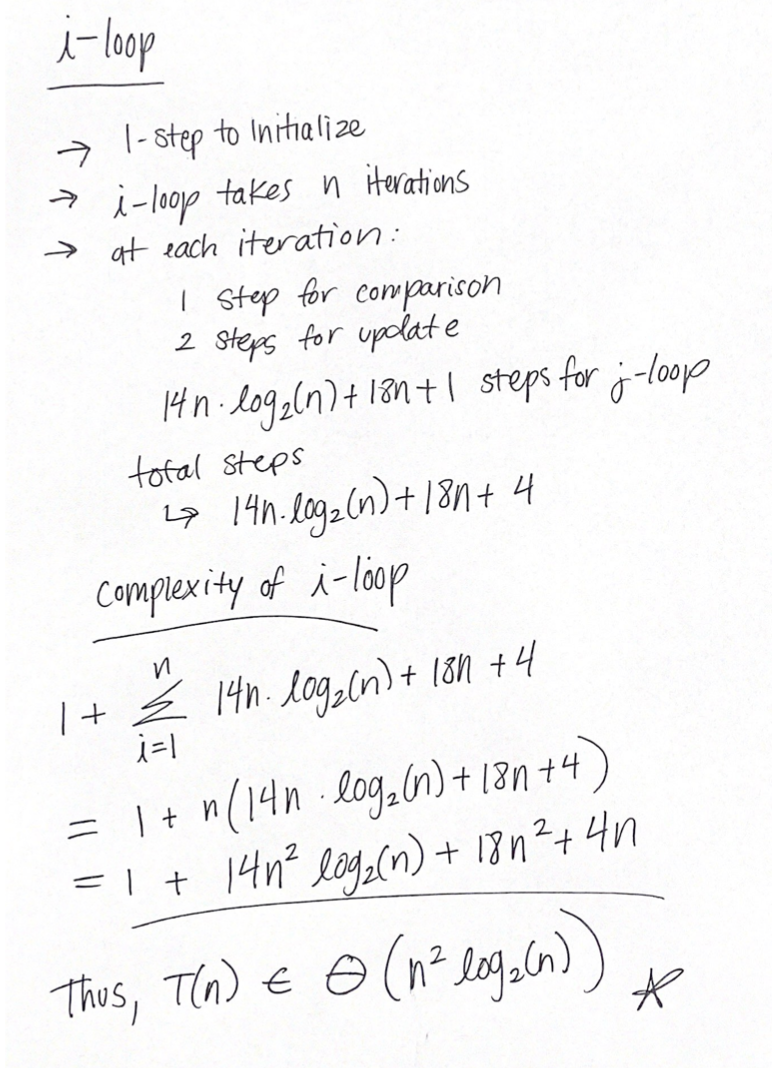 i-loop
→ 1-step to Initialize
→ i-loop takes n iterations
→ at each iteration:
1 step for comparison
2 steps for update
14n·log₂(n)+18n+1 steps for j-loop
total steps
↳ 14n·log₂(n)+18n+4
complexity of i-loop
1 + Σ_{i=1}^{n} 14n·log₂(n)+18n+4
= 1 + n(14n·log₂(n)+18n+4)
= 1 + 14n² log₂(n) + 18n² + 4n
Thus, T(n) ∈ Θ(n² log₂(n)) ☆